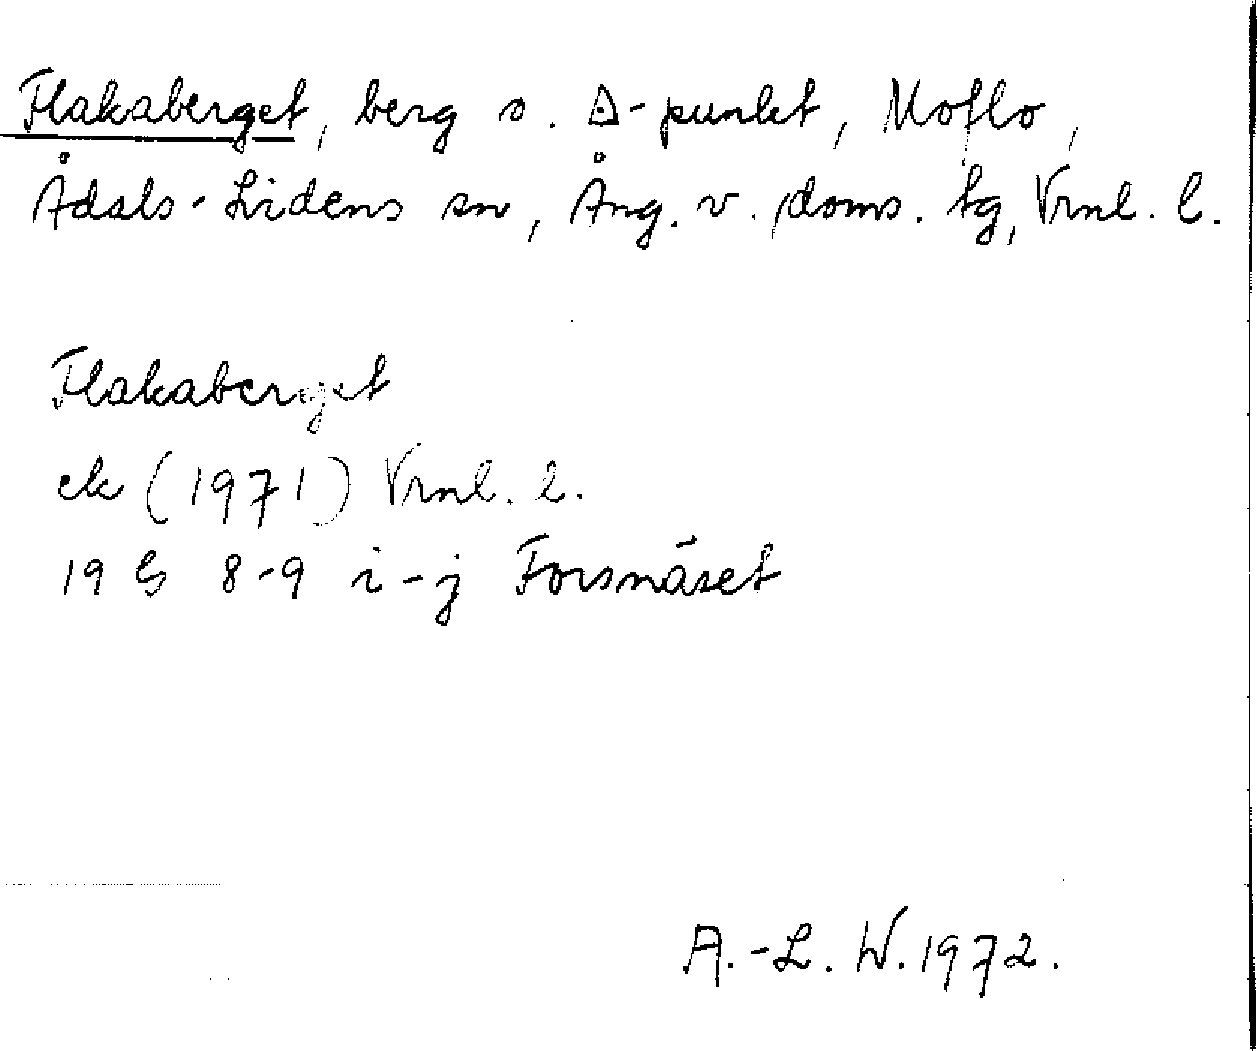 Flakaberget, berg o. △-punkt, Moflo,
Ådals-Lidens sn, Ång. v. doms. tg, Vrnl. l.
Flakaberget
ek (1971) Vrnl. l.
19 G 8-9 i-j Forsnäset
A.-L. W. 1972.